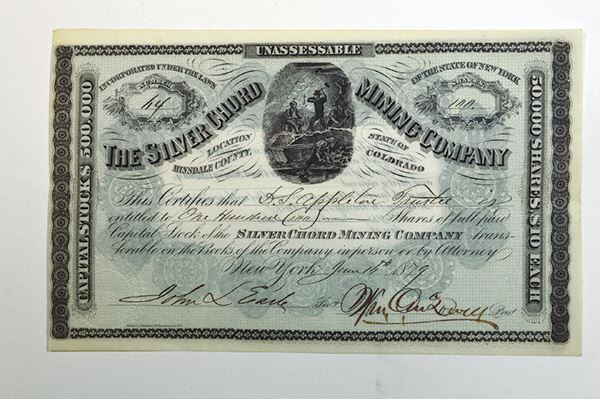 UNASSESSABLE
INCORPORATED UNDER THE LAWS
IN THE STATE OF NEW YORK
64
100
THE SILVER CHORD MINING COMPANY
LOCATION
HINSDALE COUNTY,
STATE OF
COLORADO
CAPITAL STOCK $ 500,000
50,000 SHARES, $10 EACH
This Certifies that D.S. Appleton Trustee is
entitled to One Hundred Shares of full paid
Capital Stock of the SILVER CHORD MINING COMPANY trans-
ferable on the Books of the Company in person or by Attorney
New York June 16th 1879
John L Earle Secy Wm Prest